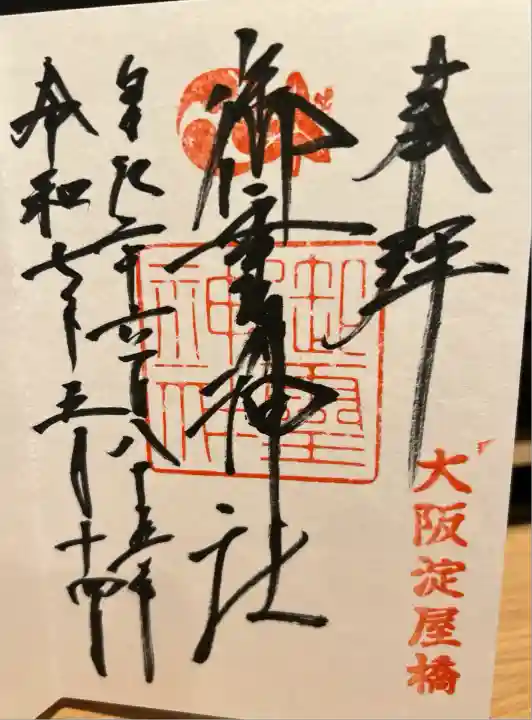 奉拝
大阪淀屋橋
御霊神社
御霊
神社
皇紀二千六百八十五年
令和七年五月十四日